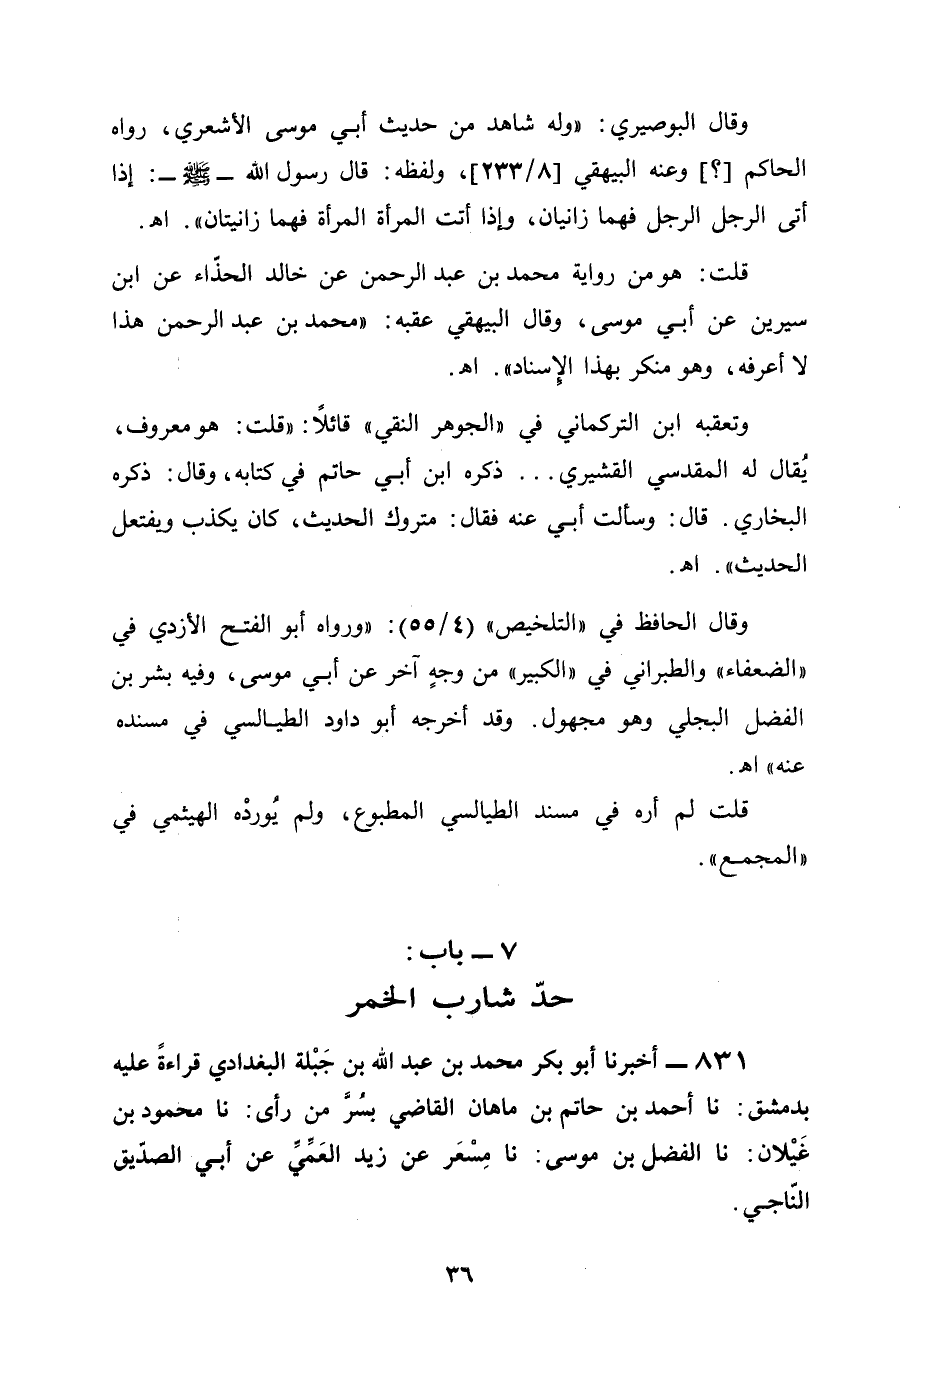 وقال البوصيري: «وله شاهد من حديث أبي موسى الأشعري، رواه
الحاكم [؟] وعنه البيهقي [٢٣٣/٨]، ولفظه: قال رسول الله ــ ﷺ ــ: إذا
أتى الرجل الرجل فهما زانيان، وإذا أتت المرأة المرأة فهما زانيتان». اهـ.
قلت: هو من رواية محمد بن عبد الرحمن عن خالد الحذّاء عن ابن
سيرين عن أبي موسى، وقال البيهقي عقبه: «محمد بن عبد الرحمن هذا
لا أعرفه، وهو منكر بهذا الإِسناد». اهـ.
وتعقبه ابن التركماني في «الجوهر النقي» قائلاً: «قلت: هو معروف،
يُقال له المقدسي القشيري... ذكره ابن أبي حاتم في كتابه، وقال: ذكره
البخاري. قال: وسألت أبي عنه فقال: متروك الحديث، كان يكذب ويفتعل
الحديث». اهـ.
وقال الحافظ في «التلخيص» (٥٥/٤): «ورواه أبو الفتح الأزدي في
«الضعفاء» والطبراني في «الكبير» من وجهٍ آخر عن أبي موسى، وفيه بشر بن
الفضل البجلي وهو مجهول. وقد أخرجه أبو داود الطيالسي في مسنده
عنه» اهـ.
قلت لم أره في مسند الطيالسي المطبوع، ولم يُوردْه الهيثمي في
«المجمع».
٧ ــ باب:
حدّ شارب الخمر
٨٣١ ــ أخبرنا أبو بكر محمد بن عبد الله بن جَبْلة البغدادي قراءةً عليه
بدمشق: نا أحمد بن حاتم بن ماهان القاضي بسُرَّ من رأى: نا محمود بن
غَيْلان: نا الفضل بن موسى: نا مِسْعَر عن زيد العَمِّيِّ عن أبي الصدّيق
النّاجي.
٣٦